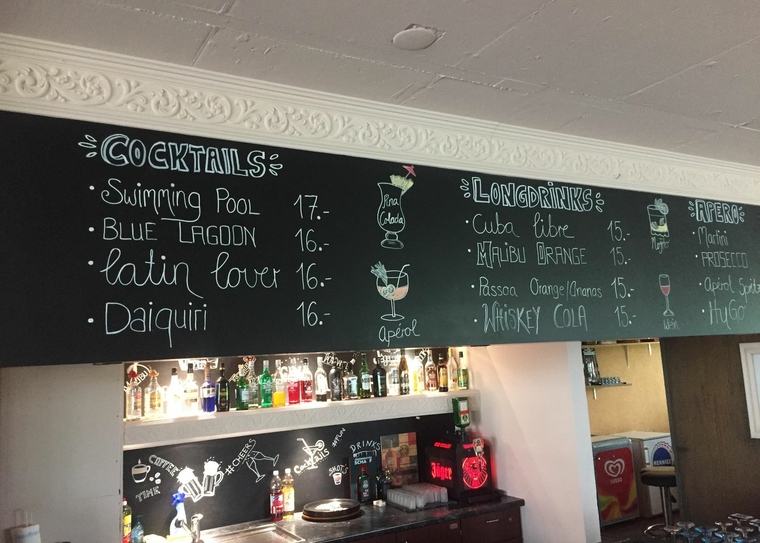 COCKTAILS
• Swimming Pool 17.-
• BLUE LAGOON 16.-
• latin lover 16.-
• Daiquiri 16.-
Pina
Colada
Apérol
LONGDRINKS
• Cuba libre 15.-
• MALIBU ORANGE 15.-
• Passoa Orange/Ananas 15.-
• WHISKEY COLA 15.-
Mojito
Wein
APERO
• Martini
• PROSECCO
• Apérol Spritz
• HuGo
COFFEE
TIME
#CHEERS
Cocktails
#FUN
DRINKS
SHOTS